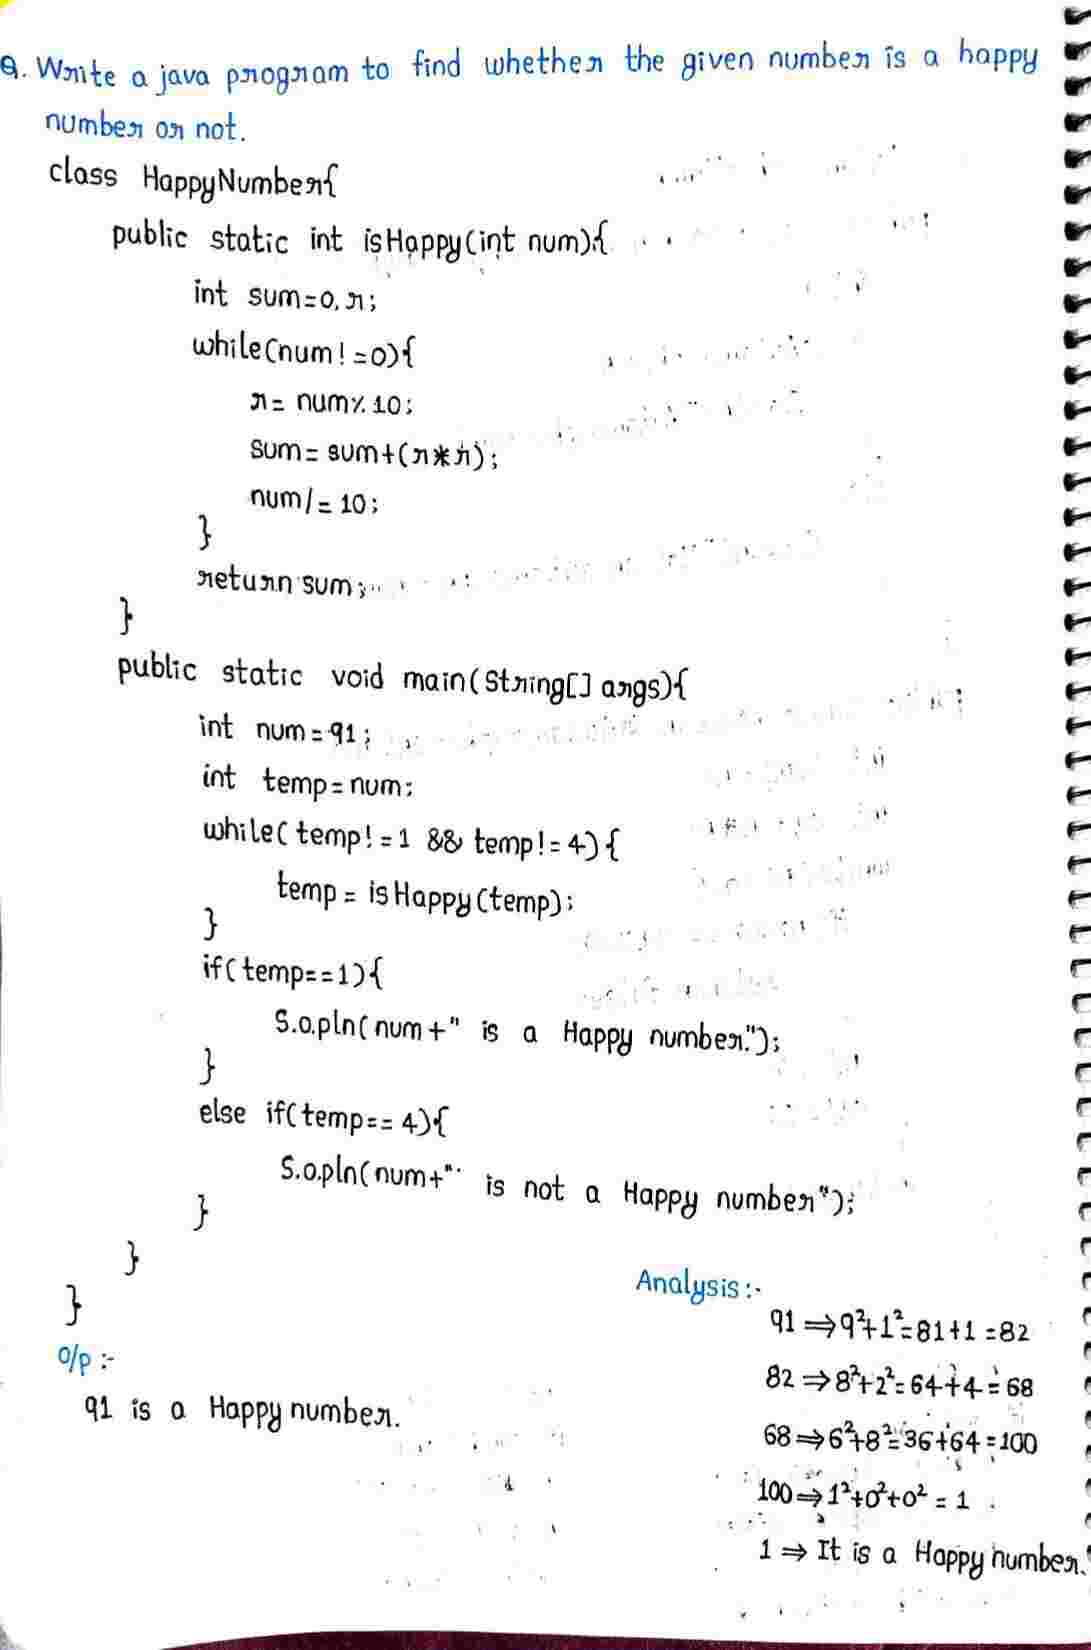 Q. Write a java program to find whether the given number is a happy
number or not.
class HappyNumber{
public static int isHappy(int num){
int sum=0, r;
while(num!=0){
r= num% 10;
sum= sum+(r*r);
num/= 10;
}
return sum;
}
public static void main(String[] args){
int num=91;
int temp=num;
while( temp!=1 && temp!= 4){
temp = isHappy(temp);
}
if(temp==1){
S.o.pln(num+" is a Happy number.");
}
else if(temp== 4){
S.o.pln(num+" is not a Happy number");
}
}
}
O/p :-
91 is a Happy number.
Analysis:-
91 ⇒ 9²+1²=81+1 =82
82 ⇒ 8²+2²=64+4=68
68⇒6²+8²=36+64=100
100⇒1²+0²+0² = 1
1 ⇒ It is a Happy number.